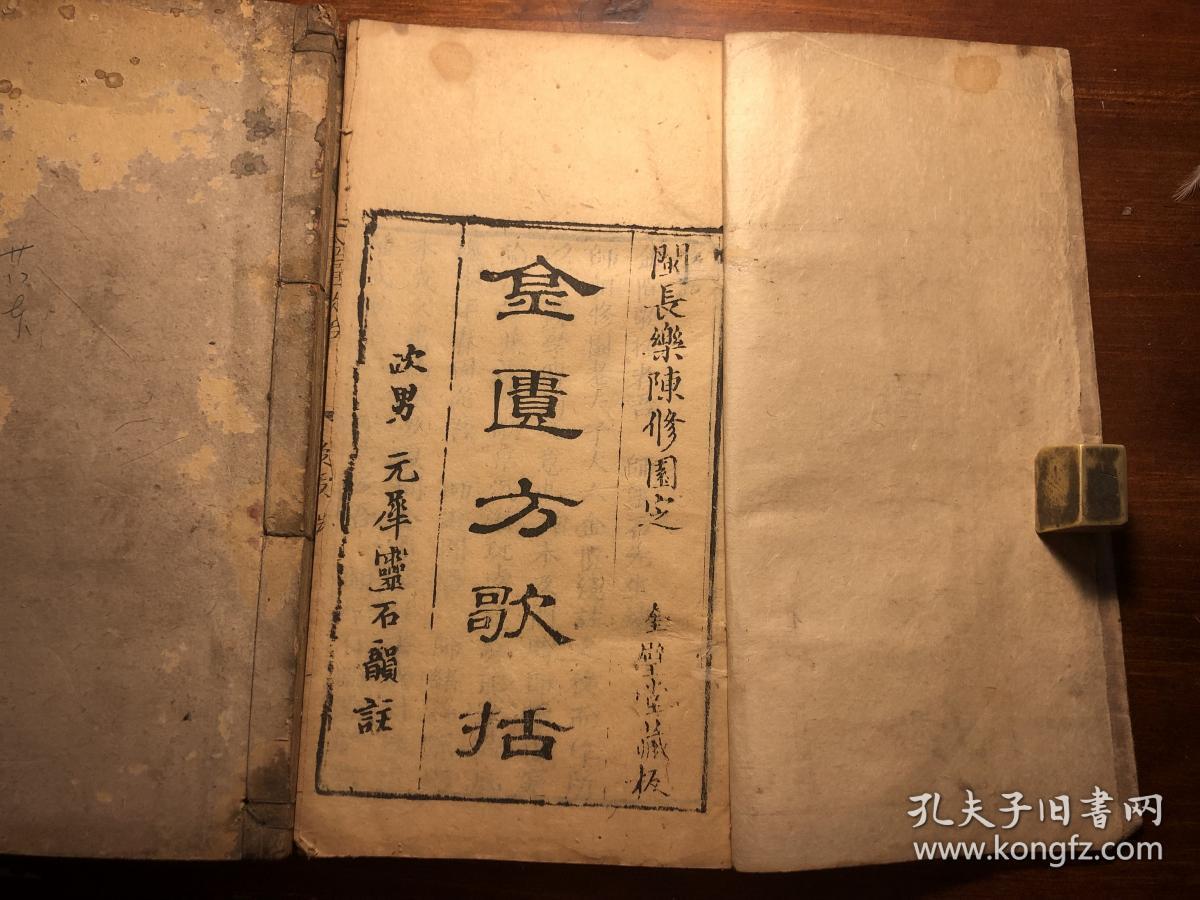 閩長樂陳修園定
金學堂藏板
金匱方歌括
次男 元犀靈石韻註
孔夫子旧书网
www.kongfz.com